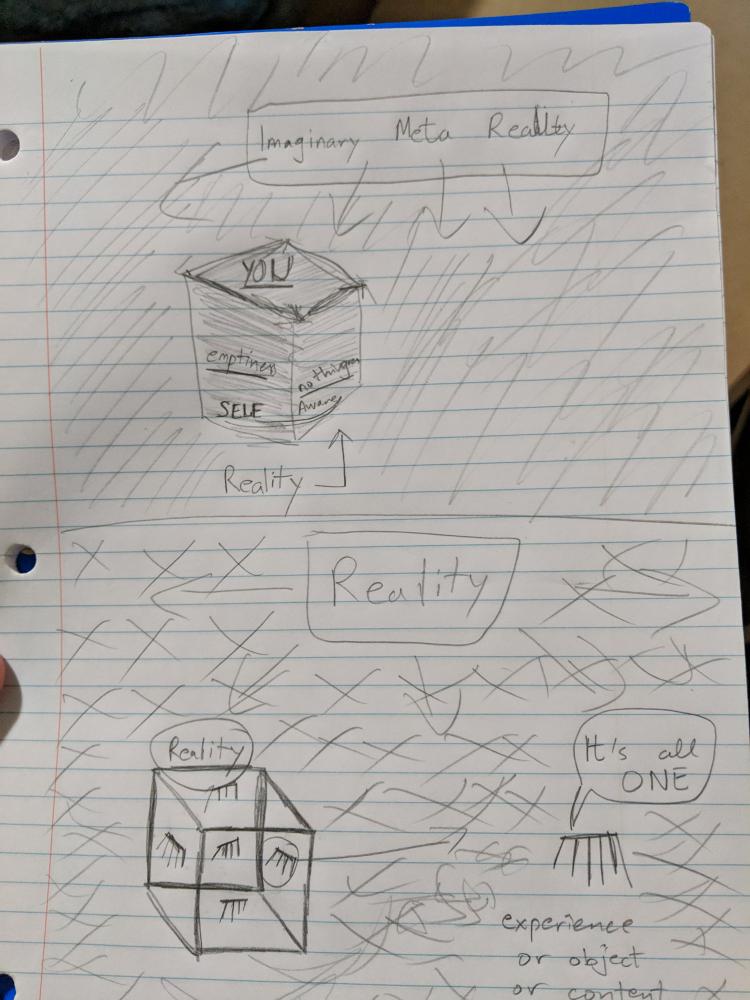 Imaginary Meta Reality
YOU
emptiness
nothingness
SELF
Aware
Reality
Reality
Reality
It's all
ONE
experience
or object
or content